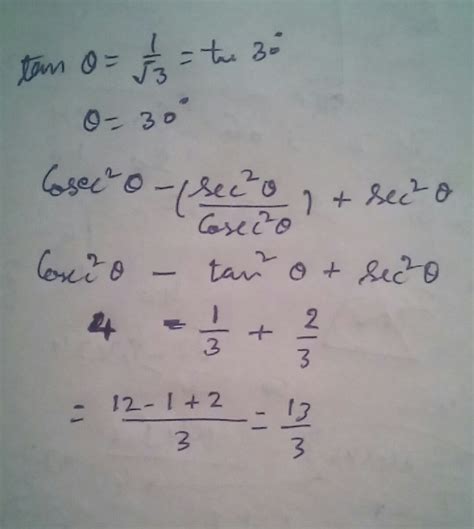 tan θ = 1/√3 = tan 30°
θ = 30°
Cosec²θ - (sec²θ/Cosec²θ) + sec²θ
Cosec²θ - tan²θ + sec²θ
4 - 1/3 + 2/3
= 12-1+2/3 = 13/3